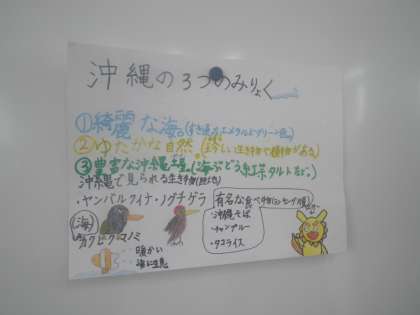 沖縄の3つのみりょく
①綺麗な海。(すき通るエメラルドグリーン色)
②ゆたかな自然。(珍しい生き物や植物がある)
③豊富な沖縄土産(海ぶどう紅芋タルトなど)
沖縄で見られる生き物
・ヤンバルクイナ・ノグチゲラ
(海)
カクレクマノミ
暖かい
海に生息
有名な食べ物
・沖縄そば
・チャンプルー
・タコライス